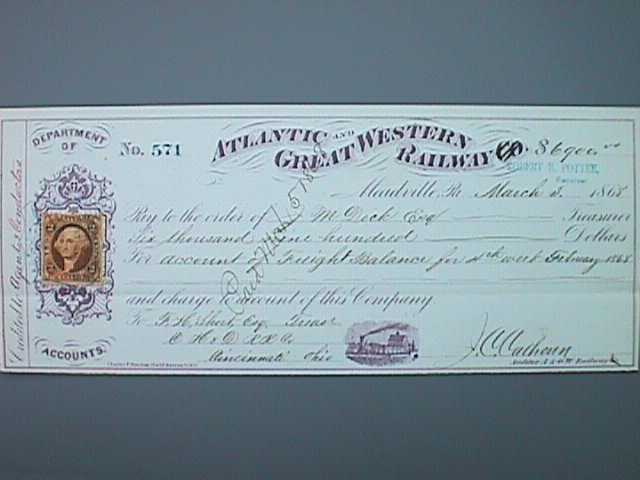 DEPARTMENT OF ACCOUNTS.
Credited to Agent or Conductor
No. 571
ATLANTIC AND GREAT WESTERN RAILWAY Co.
$6900.00
ROBERT H. POTTER,
Receiver
Meadville, Pa March 3, 1868
Pay to the order of M Deck Esq Treasurer
Six thousand nine hundred Dollars
For account of Freight Balance for 4th week February 1868
and charge to account of this Company
To F. H. Short, Esq. Treas
C H & D R R Co
Cincinnati Ohio
J. C. Calhoun
Auditor A & G W Railway